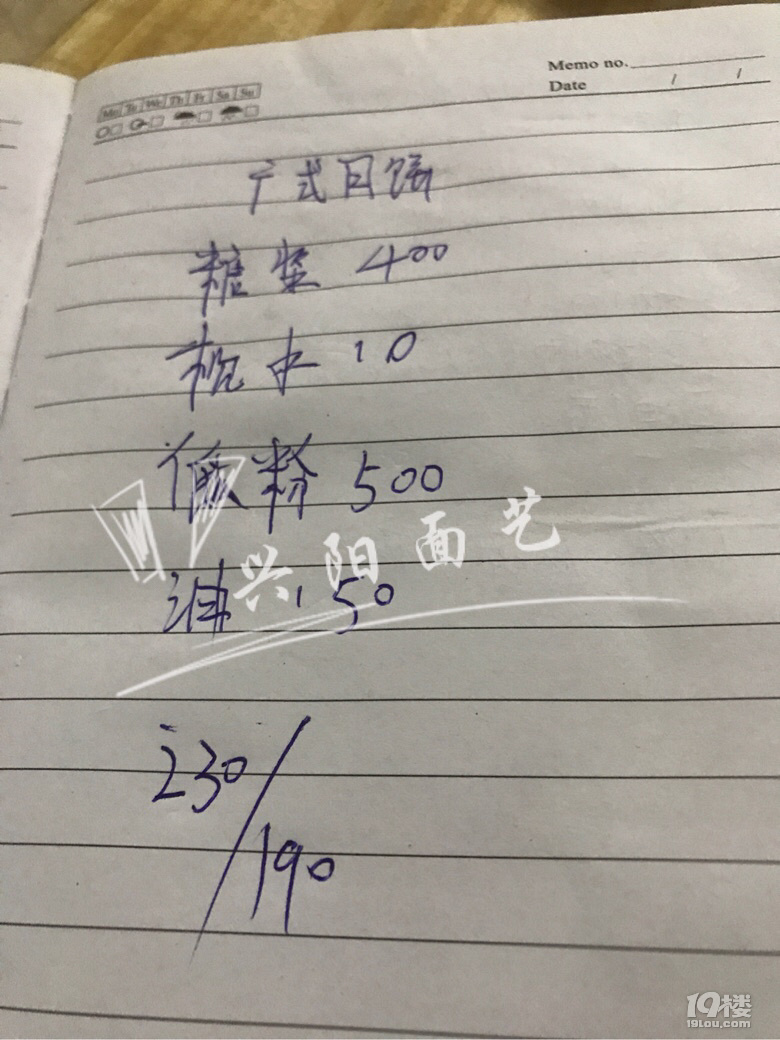 Memo no.
Date / /
Mo Tu We Th Fr Sa Su
广式月饼
糖浆 400
枧水 10
低粉 500
油 150
兴阳面艺
230/190
19楼
19lou.com